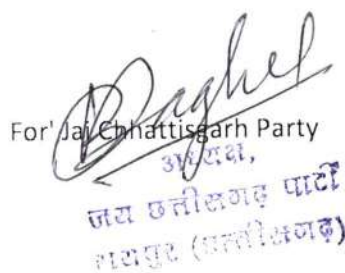 Baghel
For' Jai Chhattisgarh Party
अध्यक्ष,
जय छत्तीसगढ़ पार्टी
रायपुर (छत्तीसगढ़)